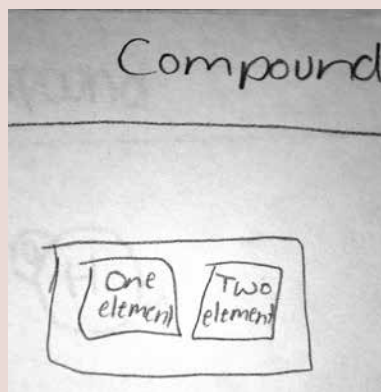 Compound
One
element
Two
element